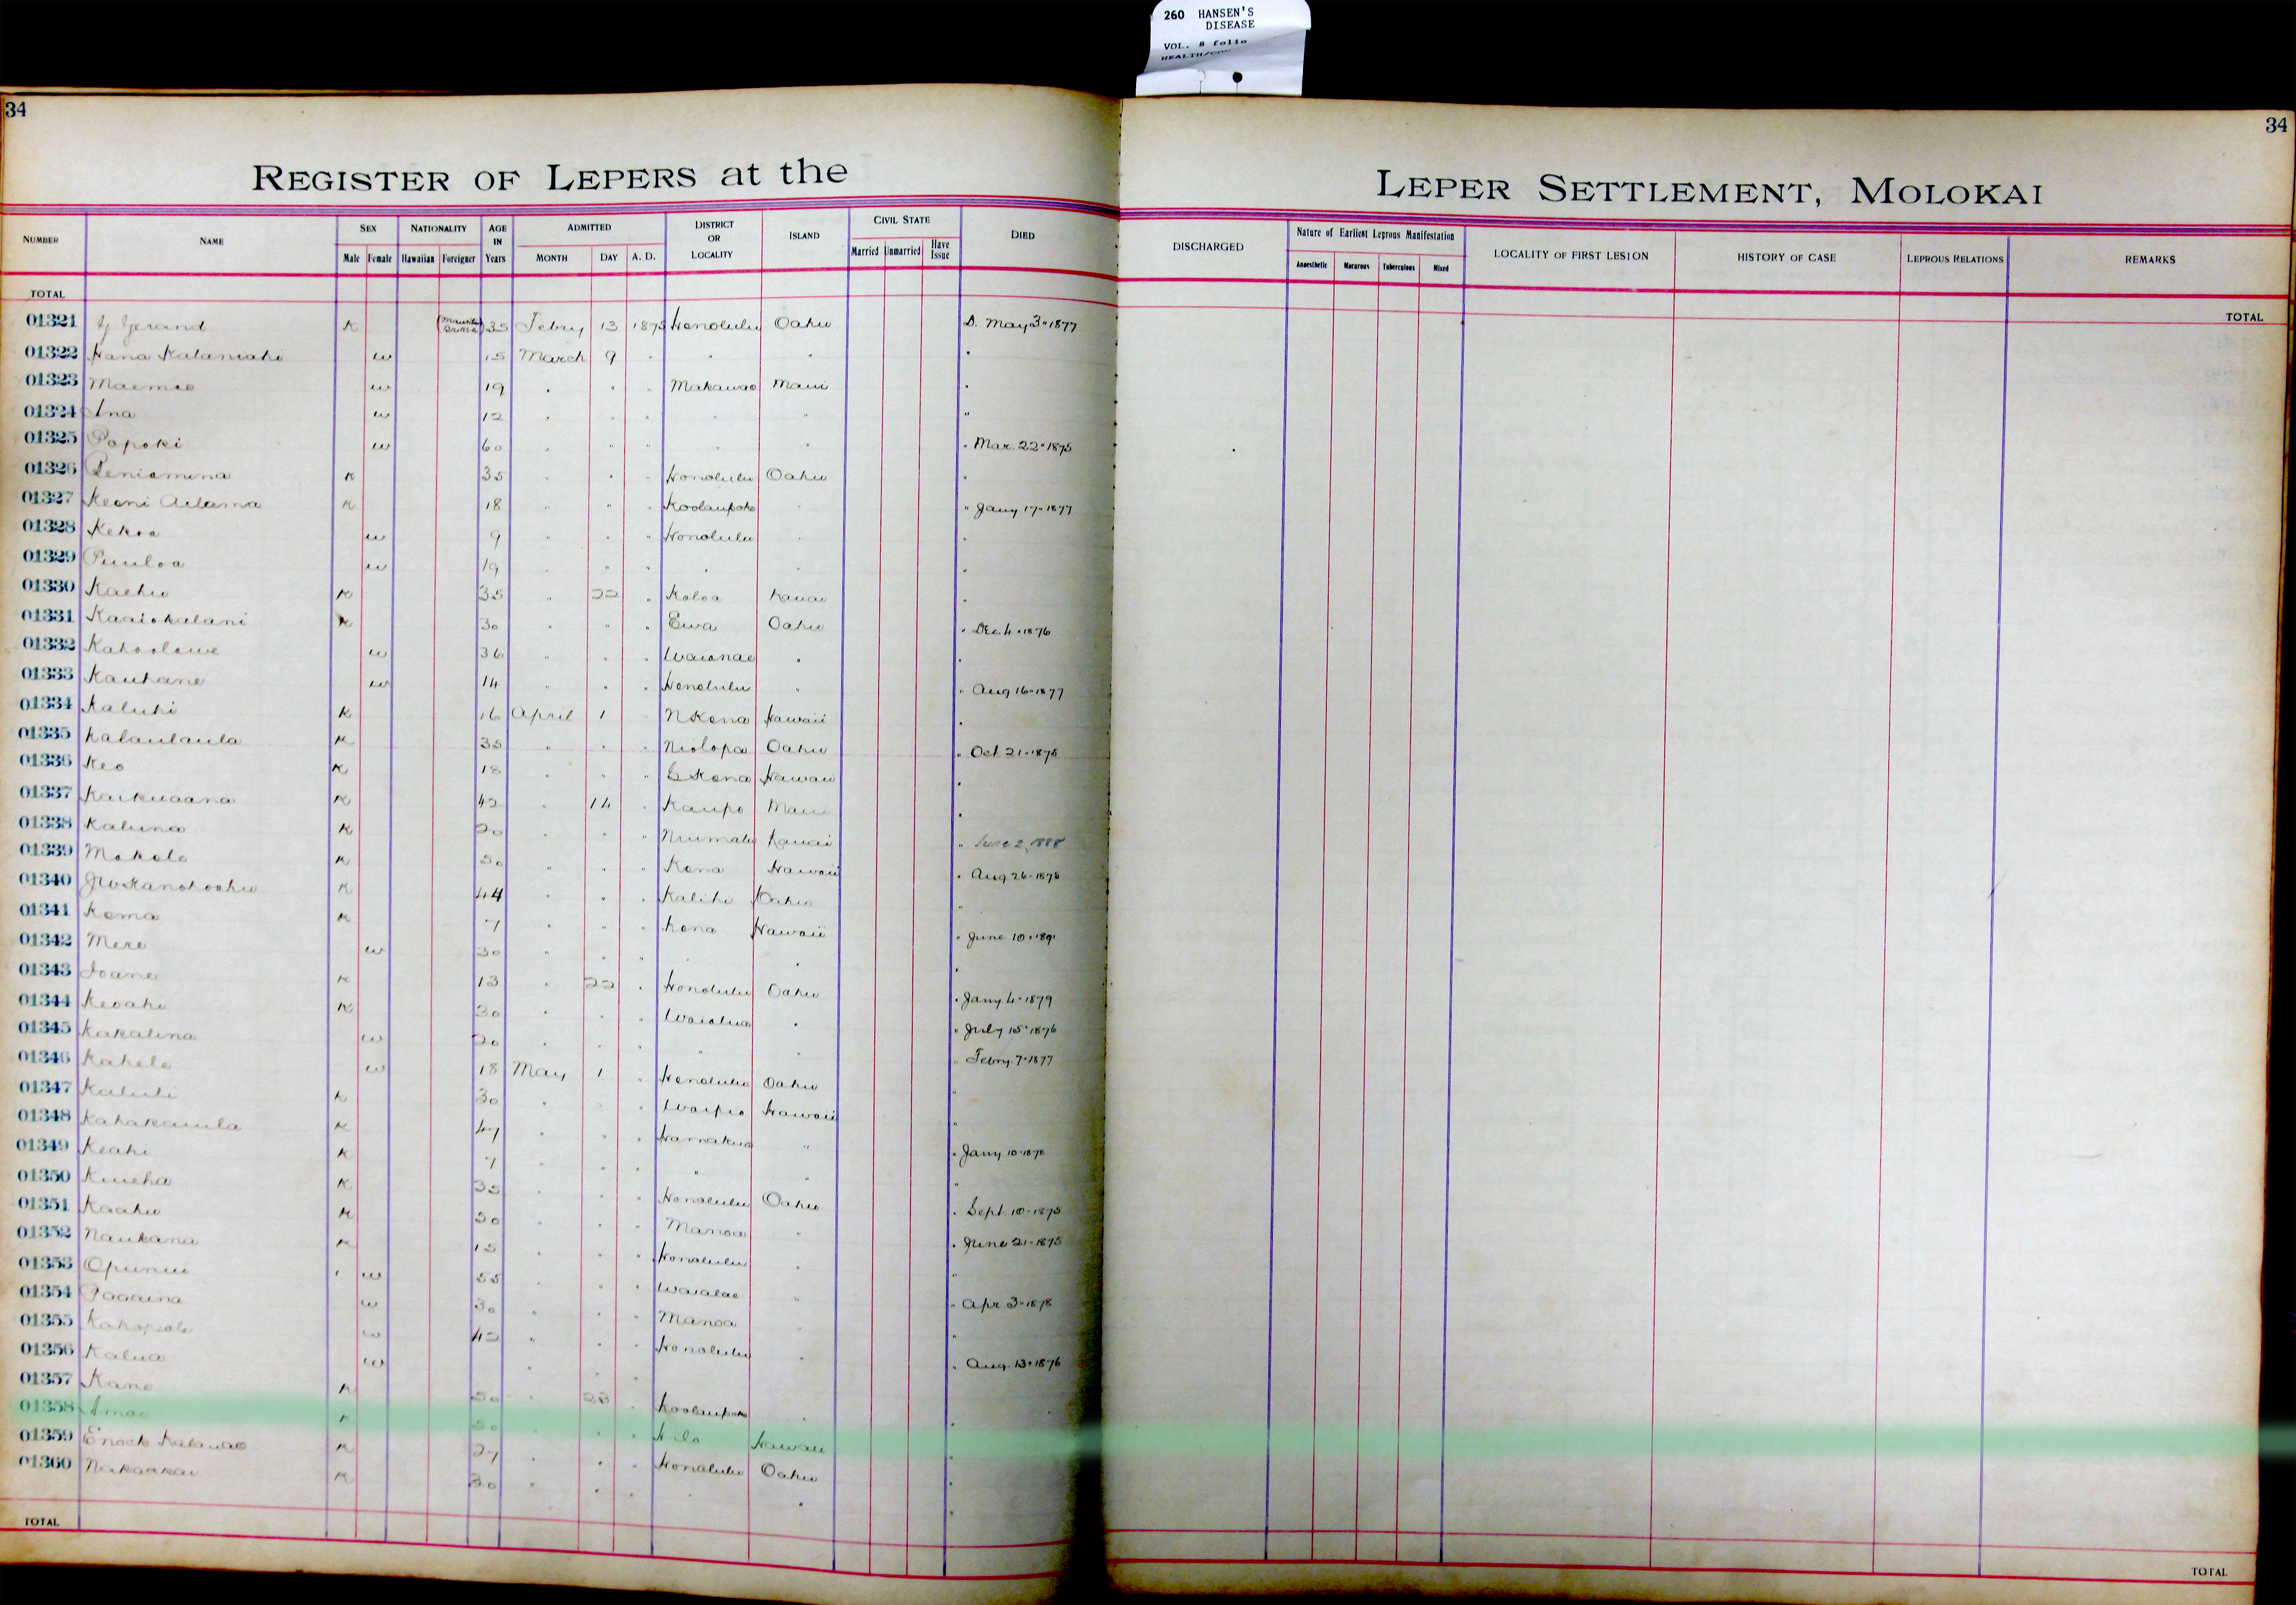 260 HANSEN'S
DISEASE
VOL. 8 folio
34
34
REGISTER OF LEPERS at the
LEPER SETTLEMENT, MOLOKAI
NUMBER NAME SEX NATIONALITY AGE IN Years ADMITTED DISTRICT OR LOCALITY ISLAND CIVIL STATE DIED
Male Female Hawaiian Foreigner MONTH DAY A. D. Married Unmarried Have Issue
DISCHARGED Nature of Earliest Leprous Manifestation LOCALITY OF FIRST LESION HISTORY OF CASE LEPROUS RELATIONS REMARKS
Anaesthetic Macurous Tuberculous Mixed
TOTAL
TOTAL
01321 Gerand K 35 Febry 13 1875 Honolulu Oahu D. May 3" 1877
01322 Hana Kalaniahi w 15 March 9 " " " "
01323 Maemae w 19 " " " Makawao Maui "
01324 Ina w 12 " " " " " "
01325 Popoki w 60 " " " " " " Mar. 22" 1875
01326 Peniamina K 35 " " " Honolulu Oahu "
01327 Keoni Adama K 18 " " " Koolaupoko " " Jany 17" 1877
01328 Kekoa w 9 " " " Honolulu " "
01329 Puuloa w 19 " " " " " "
01330 Kaehu K 35 " 22 " Koloa Kauai "
01331 Kaaiokalani K 30 " " " Ewa Oahu " Dec 4" 1876
01332 Kahoolawe w 36 " " " Waianae " "
01333 Kauhane w 14 " " " Honolulu " " Aug 16" 1877
01334 Kaluhi K 16 April 1 " N Kona Hawaii "
01335 Kalaulaula K 35 " " " Niolopa Oahu " Oct 21" 1875
01336 Keo K 18 " " " S Kona Hawaii "
01337 Kaikuaana K 42 " 14 " Kaupo Maui "
01338 Kaluna K 20 " " " Niumalu Kauai " June 2, 1888
01339 Makole K 50 " " " Kona Hawaii " Aug 26" 1878
01340 K 44 " " " Kalihi Oahu "
01341 Kema K 7 " " " Kona Hawaii " June 10" 1891
01342 Mere w 30 " " " " " "
01343 Ioane K 13 " 22 " Honolulu Oahu " Jany 4" 1879
01344 Keoahi K 30 " " " Waialua " " July 15" 1876
01345 Kakalina w 20 " " " " " " Febry 7" 1877
01346 Kahele w 18 May 1 " Honolulu Oahu "
01347 Kaluli K 30 " " " Waipio Hawaii "
01348 Kahakauila K 47 " " " Hamakua " " Jany 10" 1878
01349 Keahi K 7 " " " " " "
01350 Kuueha K 35 " " " Honolulu Oahu " Sept 10" 1875
01351 Kaahu K 50 " " " Manoa " " June 21" 1875
01352 Naukana K 15 " " " Honolulu " "
01353 Opunui w 55 " " " Waialae " " Apr 3" 1878
01354 Paaaina w 30 " " " Manoa " "
01355 w 42 " " " Honolulu " " Aug. 13" 1876
01356 Kalua w " " "
01357 Kane K 50 " 23 " Koolaupoko " "
01358 K 50 " " " Hilo Hawaii "
01359 Enoch Kalauao K 27 " " " Honolulu Oahu "
01360 Nakaakai K 30 " " " " " "
TOTAL
TOTAL